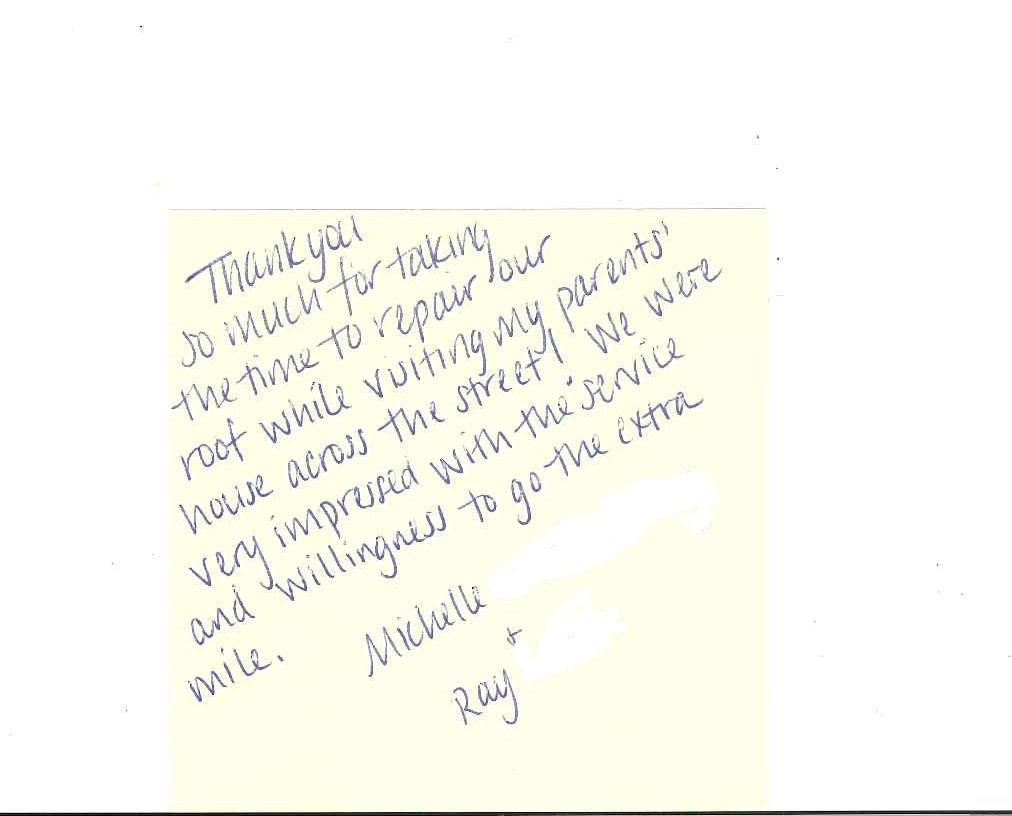 Thank you
so much for taking
the time to repair our
roof while visiting my parents'
house across the street! We were
very impressed with the service
and willingness to go the extra
mile.
Michelle
+
Ray